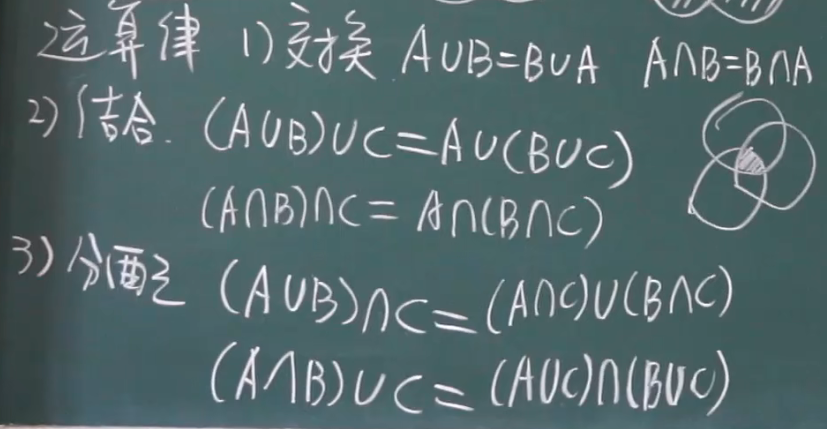 运算律 1)交换 A∪B=B∪A A∩B=B∩A
2)结合. (A∪B)∪C=A∪(B∪C)
(A∩B)∩C=A∩(B∩C)
3)分配 (A∪B)∩C=(A∩C)∪(B∩C)
(A∩B)∪C=(A∪C)∩(B∪C)